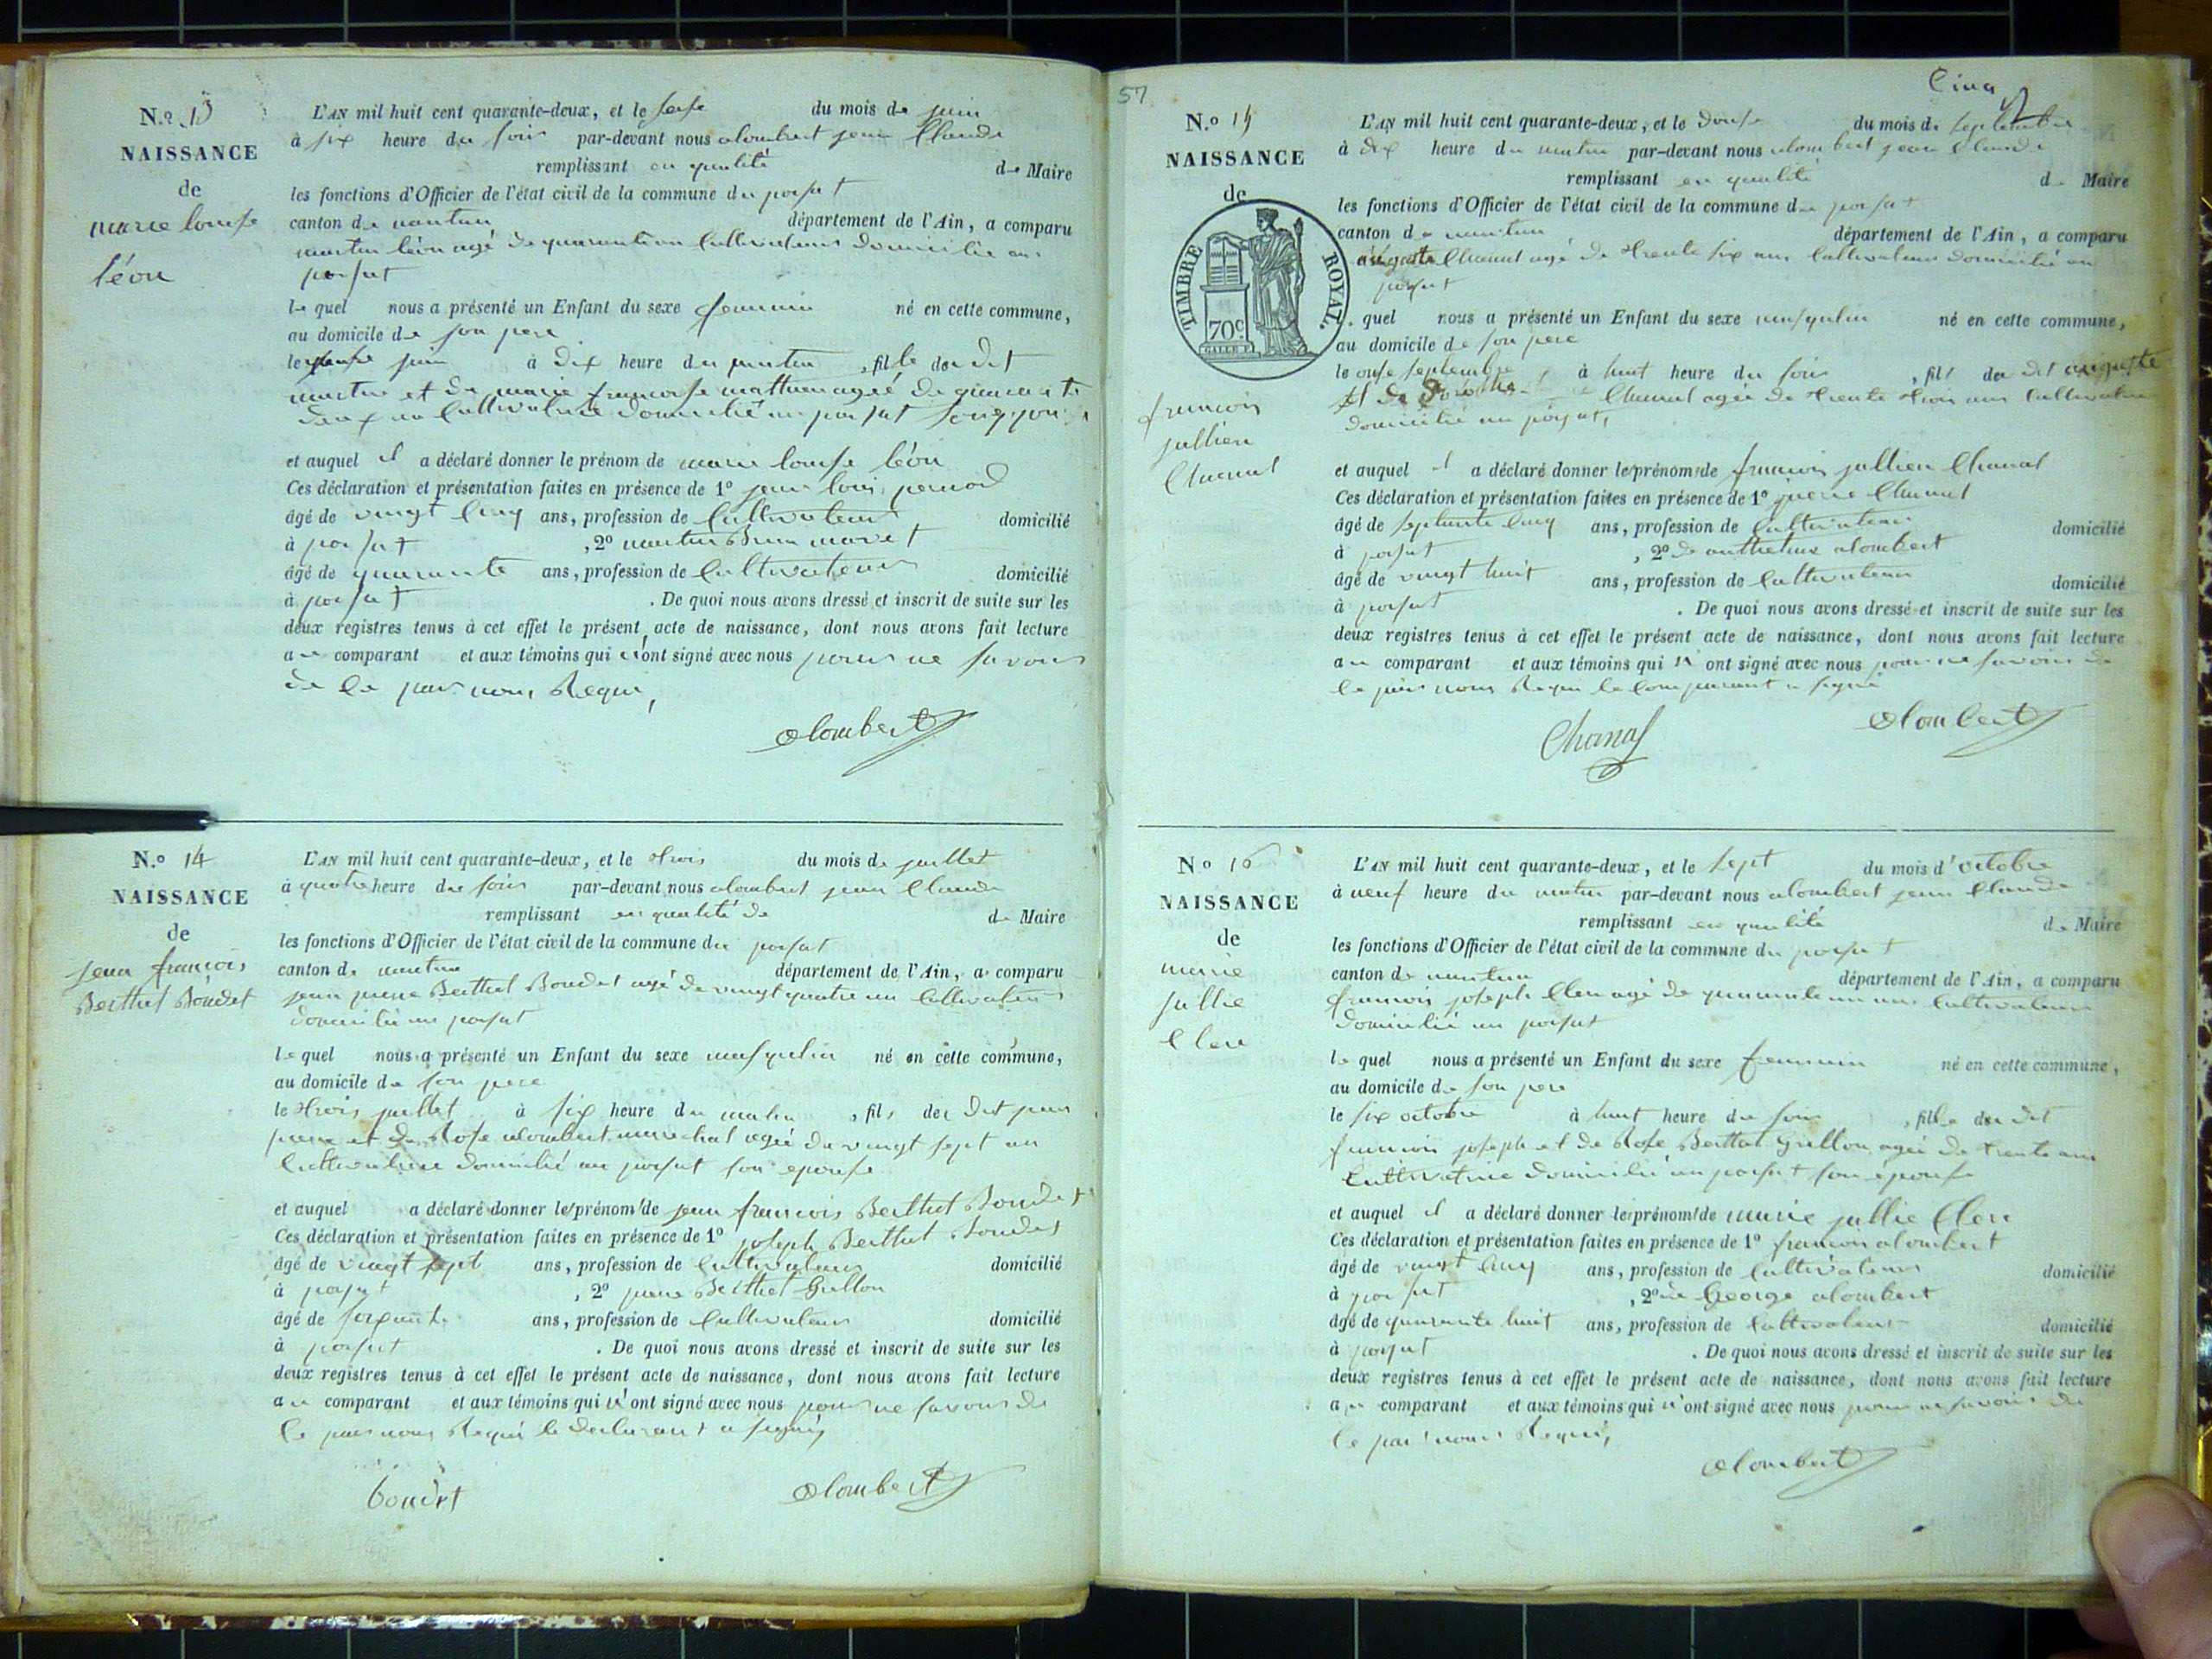 N.o 13
NAISSANCE
de
marie louise
léon
L'AN mil huit cent quarante-deux, et le sese du mois de juin
à six heure du soir par-devant nous alombert jean Claude
remplissant en qualité de Maire
les fonctions d'Officier de l'état civil de la commune du poisat
canton de nantua département de l'Ain, a comparu
martin léon agé de quarante un Cultivateur domicilié au
poisat
le quel nous a présenté un Enfant du sexe feminin né en cette commune,
au domicile de son pere
le juin à dix heure du matin , fille du dit
martin et de marie francoise agée de
deux an Cultivatrice domicilié au poisat
et auquel il a déclaré donner le prénom de marie louise léon
Ces déclaration et présentation faites en présence de 1º jean loui
âgé de vingt Cinq ans, profession de Cultivateur domicilié
à poisat , 2º martin
âgé de quarante ans, profession de Cultivateur domicilié
à poisat . De quoi nous avons dressé et inscrit de suite sur les
deux registres tenus à cet effet le présent acte de naissance, dont nous avons fait lecture
au comparant et aux témoins qui n'ont signé avec nous pour ne savoir
de Ce par nous Requi,
alombert
N.o 14
NAISSANCE
de
jean francois
Berthet Bondet
L'AN mil huit cent quarante-deux, et le trois du mois de juillet
à quatre heure du soir par-devant nous alombert jean Claude
remplissant en qualité de de Maire
les fonctions d'Officier de l'état civil de la commune du poisat
canton de nantua département de l'Ain, a comparu
jean pierre Berthet Bondet agé de vingt quatre an Cultivateur
domicilié au poisat
le quel nous a présenté un Enfant du sexe masqulin né en cette commune,
au domicile de son pere
le trois juillet à six heure du matin , fils du dit jean
pierre et de Rose alombert marechal agée de vingt sept an
Cultivatrice domicilié au poisat son epouse
et auquel a déclaré donner le prénom de jean francois Berthet Bondet
Ces déclaration et présentation faites en présence de 1º joseph Berthet Bondet
âgé de vingt sept ans, profession de Cultivateur domicilié
à poisat , 2º pierre Berthet Grillon
âgé de soixante ans, profession de Cultivateur domicilié
à poisat . De quoi nous avons dressé et inscrit de suite sur les
deux registres tenus à cet effet le présent acte de naissance, dont nous avons fait lecture
au comparant et aux témoins qui n'ont signé avec nous pour ne savoir de
Ce par nous Requi le declarant a signé
bondet alombert
57
Cinq
N.o 15
NAISSANCE
de
TIMBRE ROYAL.
70c
francois
jullien
Chanal
L'AN mil huit cent quarante-deux, et le douse du mois de septembre
à dix heure du matin par-devant nous alombert jean Claude
remplissant en qualité de Maire
les fonctions d'Officier de l'état civil de la commune du poisat
canton de nantua département de l'Ain, a comparu
auguste Chanal agé de trente six ans Cultivateur domicilié au
poisat
le quel nous a présenté un Enfant du sexe masqulin né en cette commune,
au domicile de son pere
le onse septembre à huit heure du soir , fils du dit auguste
et de Chanal agée de trente trois ans Cultivatrice
domicilié au poisat,
et auquel il a déclaré donner le prénom de francois jullien Chanal
Ces déclaration et présentation faites en présence de 1º pierre Chanal
âgé de septante Cinq ans, profession de Cultivateur domicilié
à poisat , 2º de anthelme alombert
âgé de vingt huit ans, profession de Cultivateur domicilié
à poisat . De quoi nous avons dressé et inscrit de suite sur les
deux registres tenus à cet effet le présent acte de naissance, dont nous avons fait lecture
au comparant et aux témoins qui n'ont signé avec nous pour ne savoir de
Ce par nous Requi le Comparant a signé
Chanal alombert
N.o 16
NAISSANCE
de
marie
jullie
Clerc
L'AN mil huit cent quarante-deux, et le sept du mois d'octobre
à neuf heure du matin par-devant nous alombert jean Claude
remplissant en qualité de Maire
les fonctions d'Officier de l'état civil de la commune du poisat
canton de nantua département de l'Ain, a comparu
francois joseph Clerc agé de quarante un ans Cultivateur
domicilié au poisat
le quel nous a présenté un Enfant du sexe feminin né en cette commune,
au domicile de son pere
le six octobre à huit heure du soir , fille du dit
francois joseph et de Rose Berthet Grillon agée de trente ans
Cultivatrice domicilié au poisat son épouse
et auquel il a déclaré donner le prénom de marie jullie Clerc
Ces déclaration et présentation faites en présence de 1º francois alombert
âgé de vingt Cinq ans, profession de Cultivateur domicilié
à poisat , 2º de George alombert
âgé de quarante huit ans, profession de Cultivateur domicilié
à poisat . De quoi nous avons dressé et inscrit de suite sur les
deux registres tenus à cet effet le présent acte de naissance, dont nous avons fait lecture
au comparant et aux témoins qui n'ont signé avec nous pour ne savoir de
Ce par nous Requi,
alombert